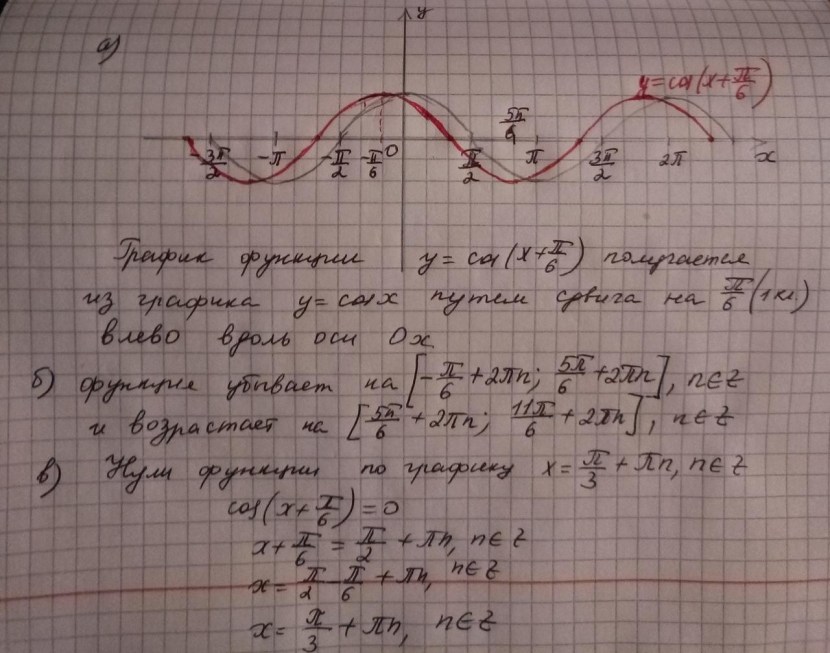 а)
y
y=cos(x+π/6)
5π/6
-3π/2 -π -π/2 -π/6 0 π/2 π 3π/2 2π x
График функции y = cos(x+π/6) получается
из графика y=cosx путем сдвига на π/6 (1 кл.)
влево вдоль оси Ox
б) функция убывает на [-π/6 + 2πn; 5π/6 + 2πn], n∈Z
и возрастает на [5π/6 + 2πn; 11π/6 + 2πn], n∈Z
в) Нули функции по графику x = π/3 + πn, n∈Z
cos(x+π/6)=0
x+π/6 = π/2 + πn, n∈Z
x= π/2 - π/6 + πn, n∈Z
x= π/3 + πn, n∈Z